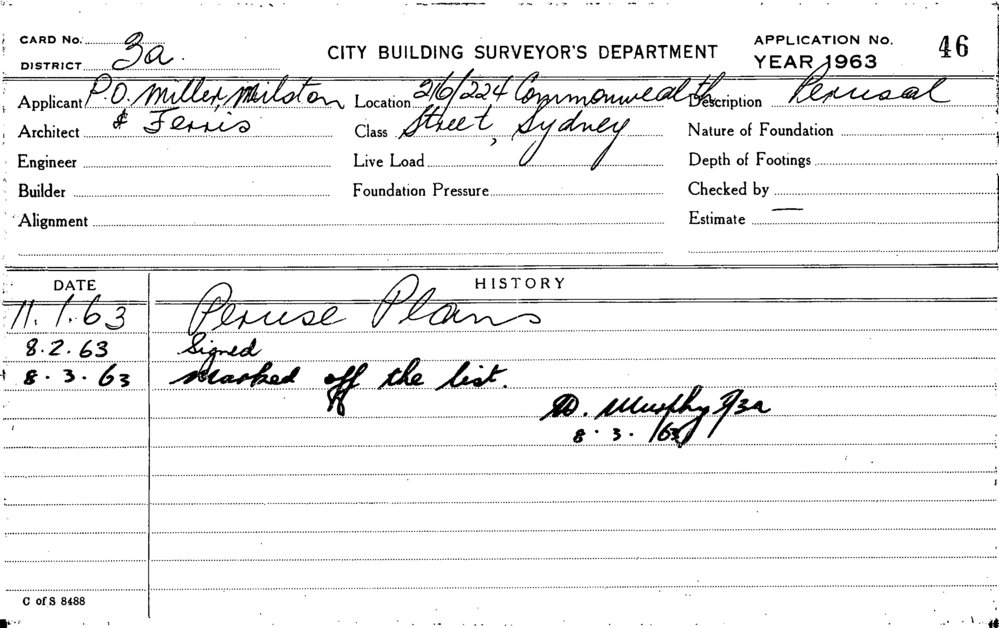 CARD No.
DISTRICT 3a.
CITY BUILDING SURVEYOR'S DEPARTMENT
APPLICATION No. 46
YEAR 1963
Applicant P.O. Miller, Milston
& Ferris
Location 216/224 Commonwealth
Street, Sydney
Description Perusal
Architect
Class
Nature of Foundation
Engineer
Live Load
Depth of Footings
Builder
Foundation Pressure
Checked by
Alignment
Estimate —
DATE HISTORY
11.1.63 Peruse Plans
8.2.63 Signed
8.3.63 Marked off the list.
D. Murphy 3a
8.3./63
C of S 8488